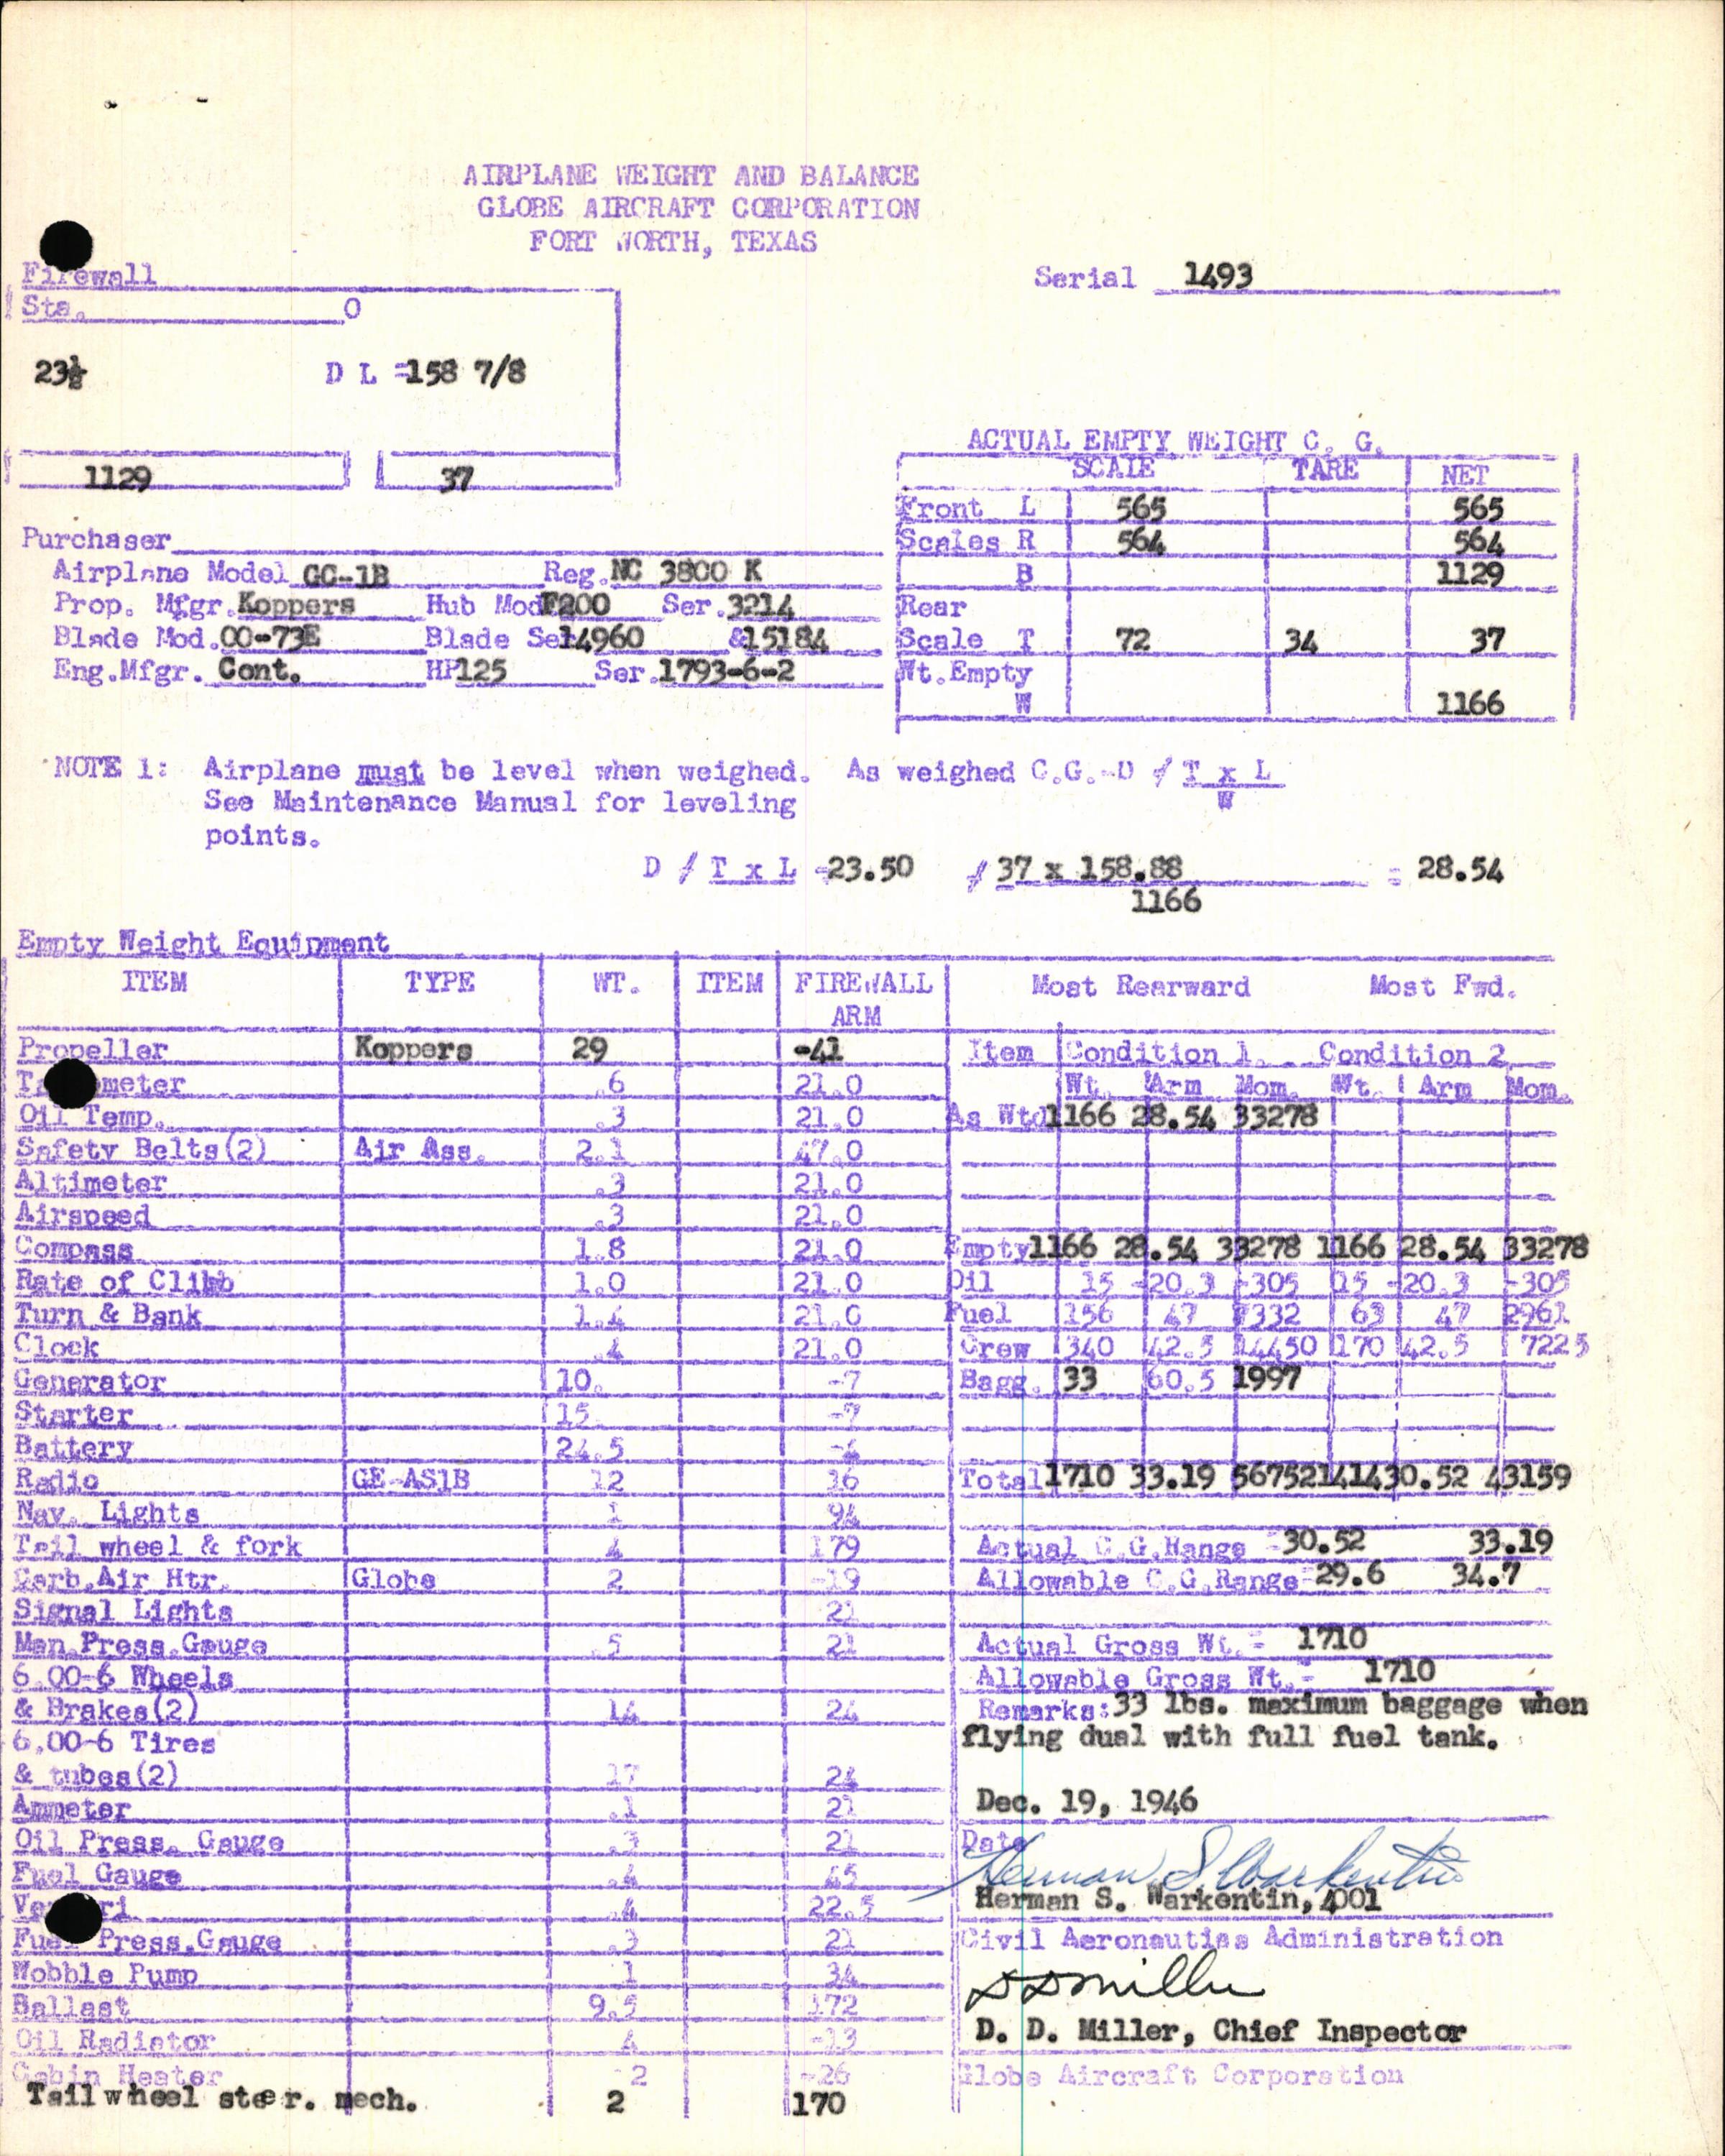 AIRPLANE WEIGHT AND BALANCE
GLOBE AIRCRAFT CORPORATION
FORT WORTH, TEXAS
Firewall
Serial 1493
Sta. 0
23½ D L =158 7/8
1129 37
ACTUAL EMPTY WEIGHT C. G.
SCALE TARE NET
Front L 565 565
Scales R 564 564
B 1129
Rear
Scale T 72 34 37
Wt.Empty
W 1166
Purchaser
Airplane Model GC-1B Reg. NC 3800 K
Prop. Mfgr. Koppers Hub Mod F200 Ser. 3214
Blade Mod. 00-73E Blade Se 14960 & 15184
Eng.Mfgr. Cont. HP 125 Ser. 1793-6-2
NOTE 1: Airplane must be level when weighed. As weighed C.G.-D / T x L
W
See Maintenance Manual for leveling
points.
D / T x L 23.50 / 37 x 158.88 = 28.54
1166
Empty Weight Equipment
ITEM TYPE WT. ITEM FIREWALL
ARM
Propeller Koppers 29 -41
meter .6 21.0
Oil Temp. .3 21.0
Safety Belts(2) Air Ass. 2.1 47.0
Altimeter .3 21.0
Airspeed .3 21.0
Compass 1.8 21.0
Rate of Climb 1.0 21.0
Turn & Bank 1.4 21.0
Clock .4 21.0
Generator 10. -7
Starter 15 -7
Battery 24.5 -4
Radio GE-AS1B 12 16
Nav. Lights 1 94
Tail wheel & fork 4 179
Carb.Air Htr. Globe 2 -19
Signal Lights 21
Man.Press.Gauge .5 21
6.00-6 Wheels
& Brakes(2) 14 24
6.00-6 Tires
& tubes(2) 17 24
Ammeter .1 21
Oil Press. Gauge .3 21
Fuel Gauge .4 45
Venturi .4 22.5
Fuel Press.Gauge .3 21
Wobble Pump 1 34
Ballast 9.5 172
Oil Radiator 4 -13
Cabin Heater 2 -26
Tail wheel steer. mech. 2 170
Most Rearward Most Fwd.
Item Condition 1. Condition 2
Wt. Arm Mom. Wt. Arm Mom.
As Wtd 1166 28.54 33278
Empty 1166 28.54 33278 1166 28.54 33278
Oil 15 -20.3 -305 15 -20.3 -305
Fuel 156 47 7332 63 47 2961
Crew 340 42.5 14450 170 42.5 7225
Bagg. 33 60.5 1997
Total 1710 33.19 56752 1414 30.52 43159
Actual C.G.Range 30.52 33.19
Allowable C.G.Range 29.6 34.7
Actual Gross Wt. = 1710
Allowable Gross Wt. = 1710
Remarks: 33 lbs. maximum baggage when
flying dual with full fuel tank.
Dec. 19, 1946
Date
Herman S. Warkentin
Herman S. Warkentin, 4001
Civil Aeronautics Administration
D D Miller
D. D. Miller, Chief Inspector
Globe Aircraft Corporation